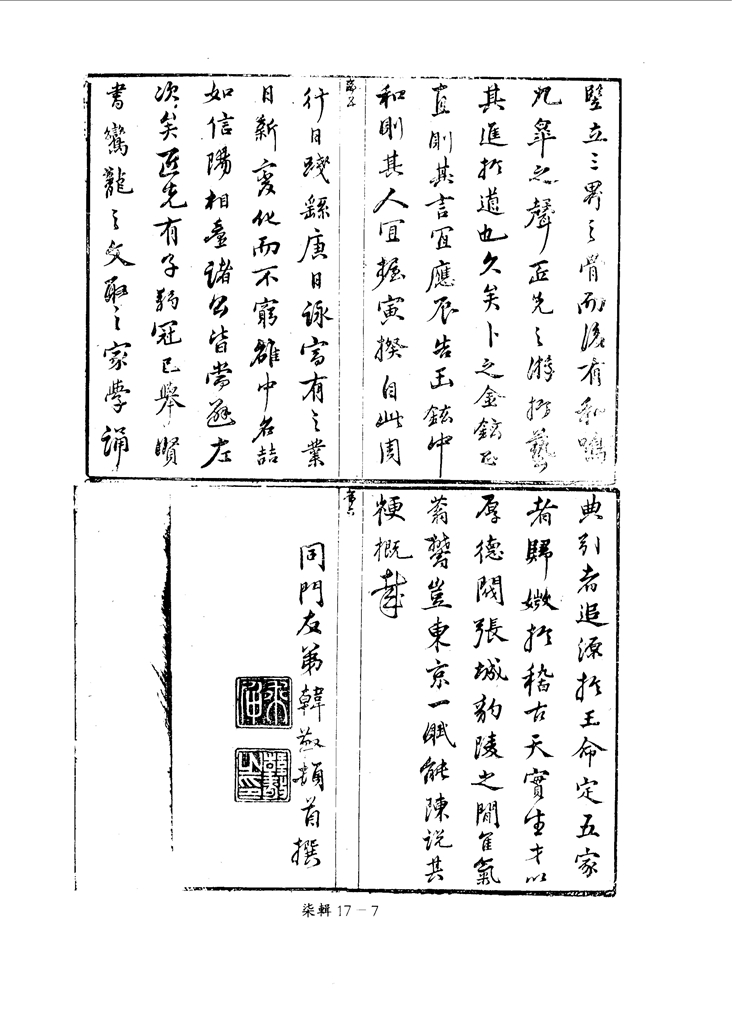 豎立三界之骨而後有和鳴
九皋之聲匠先之游於藝
其進於道也久矣卜之金鉉正
直則其言宜應辰告玉鉉中
和則其人宜握寅揆自此周
序五
行日踐繇庚日詠富有之業
日新變化而不窮雒中名喆
如信陽相臺諸公皆當避左
次矣匠先有子弱冠已舉賢
書鸞龍之文取之家學誦
典引者追源於王命定五家
者歸媺於稽古天實生才以
厚德閥張城豹陵之間隹氣
蓊鬱豈東京一賦能陳說其
梗概哉
序六
同門友弟韓敬頓首撰
柒輯 17－7